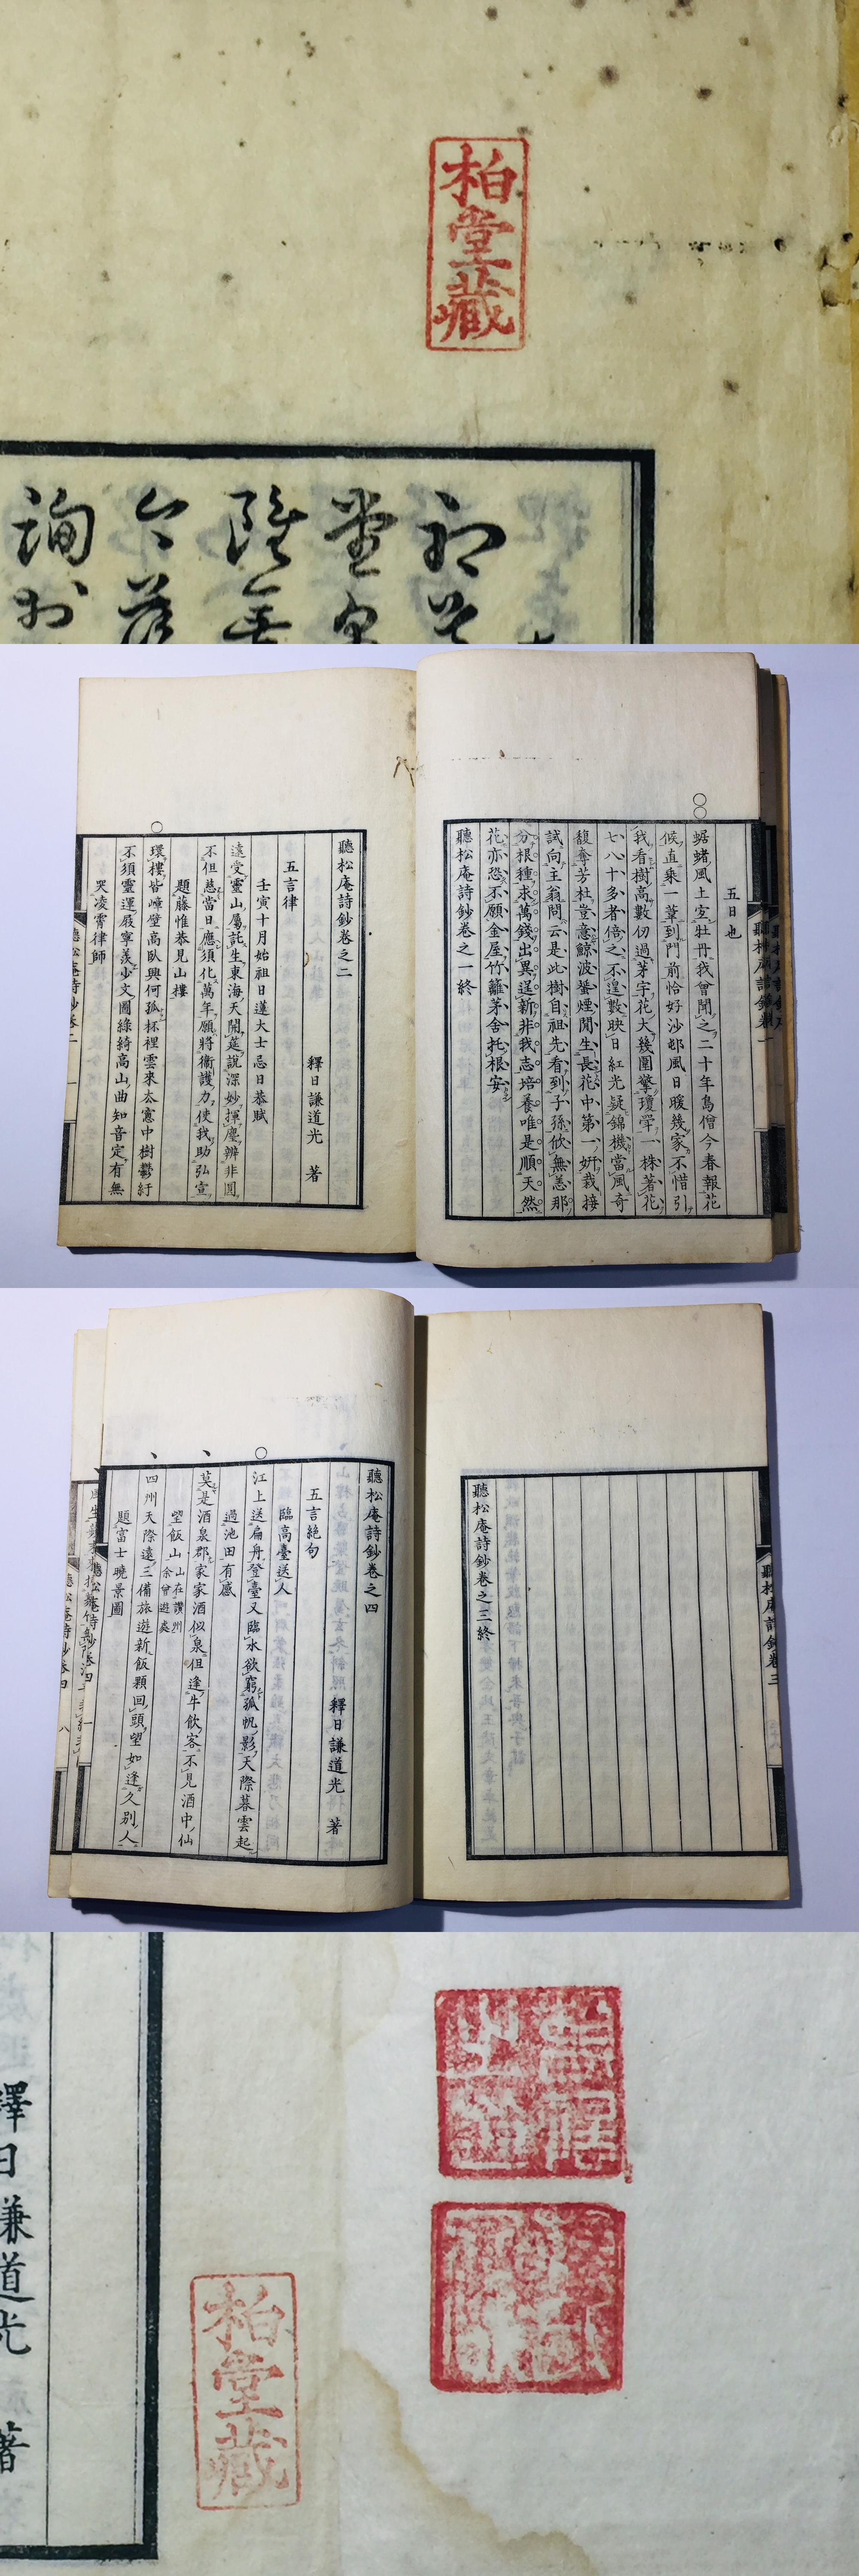 柏堂藏
五日也
蝘蝫風土宜牡丹我曾聞之二十年島僧今春報花
候直乘一葦到門前恰好沙邨風日暖幾家不惜引
我看樹高數仞過茅宇花大幾圍擎瓊罕一株著花
七八十多者倍之不遑數映日紅光疑錦機當風奇
馥奪芳杜豈意鯨波蜑煙間生長花中第一妍栽接
試向主翁問云是此樹自祖先看到子孫欣無恙那
分根種求萬錢出異逞新非我志培養唯是順天然
花亦恐不願金屋竹籬茅舍托根安
聽松庵詩鈔卷之一終
聽松庵詩鈔卷之二
釋日謙道光 著
五言律
壬寅十月始祖日蓮大士忌日恭賦
遠受靈山屬託生東海天開莚說深妙揮麈辨非圓
不但慈當日應須化萬年願將衞護力使我助弘宣
題藤惟恭見山樓
環樓皆嶂壁高臥興何孤杯裡雲來去窻中樹鬱紆
不須靈運屐寧羨少文圖綠綺高山曲知音定有無
哭凌霄律師
聽松庵詩鈔卷二 一
聽松庵詩鈔卷三
聽松庵詩鈔卷之三終
聽松庵詩鈔卷之四
釋日謙道光 著
五言絕句
臨高臺送人
江上送扁舟登臺又臨水欲窮孤帆影天際暮雲起
過池田有感
莫是酒泉郡家家酒似泉但逢牛飲客不見酒中仙
望飯山山在讚州余曾遊處
四州天際遠三備旅遊新飯顆回頭望如逢久別人
題富士曉景圖
聽松庵詩鈔卷四 一
聽松庵詩鈔卷四 八
釋日謙道光 著
柏堂藏